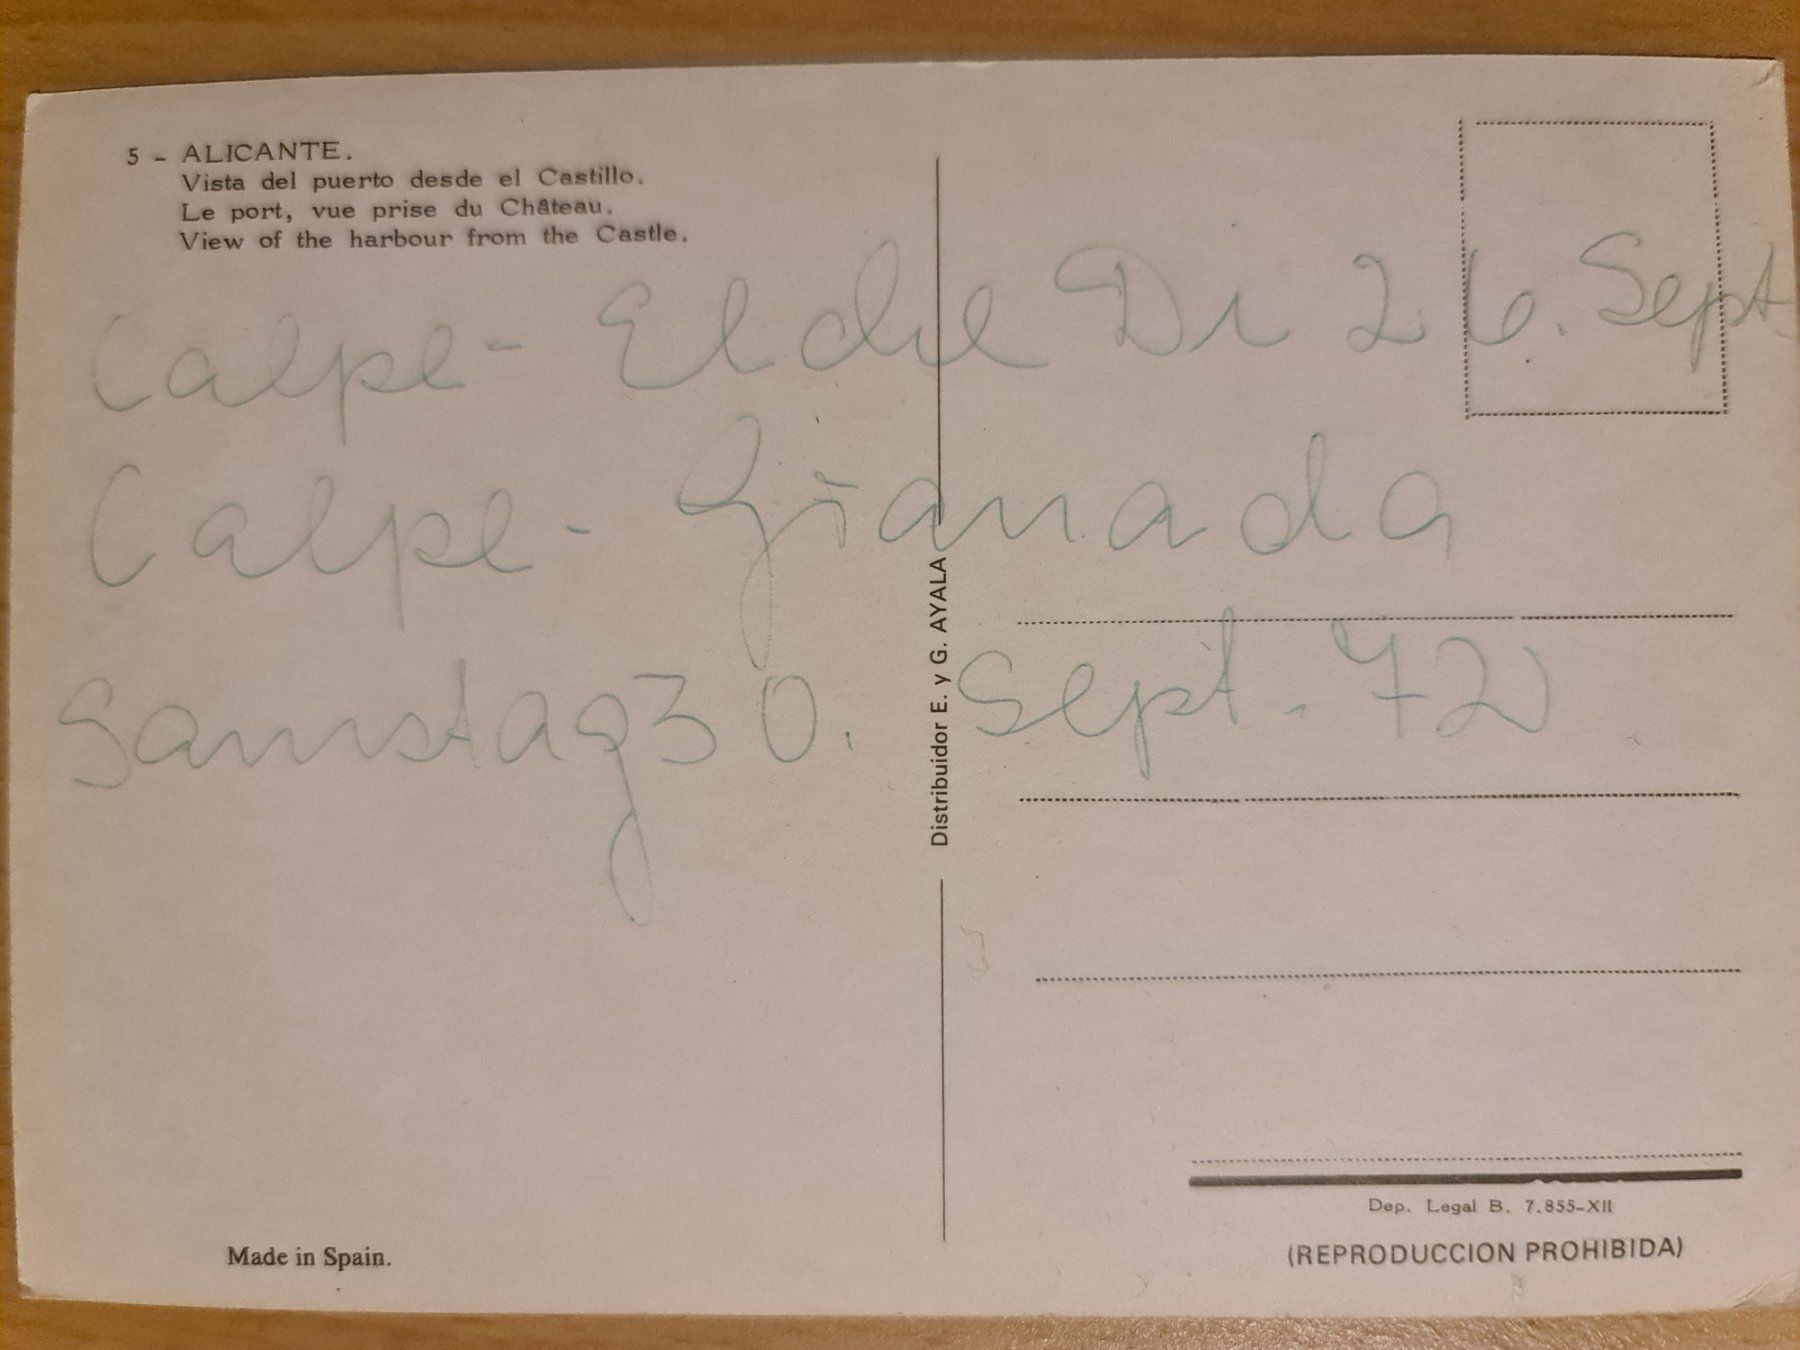 5 - ALICANTE.
Vista del puerto desde el Castillo.
Le port, vue prise du Château.
View of the harbour from the Castle.
Calpe - Elche Di 26. Sept.
Calpe - Granada
Samstag 30. Sept. 72
Distribuidor E. y G. AYALA
Made in Spain.
Dep. Legal B. 7.855-XII
(REPRODUCCION PROHIBIDA)